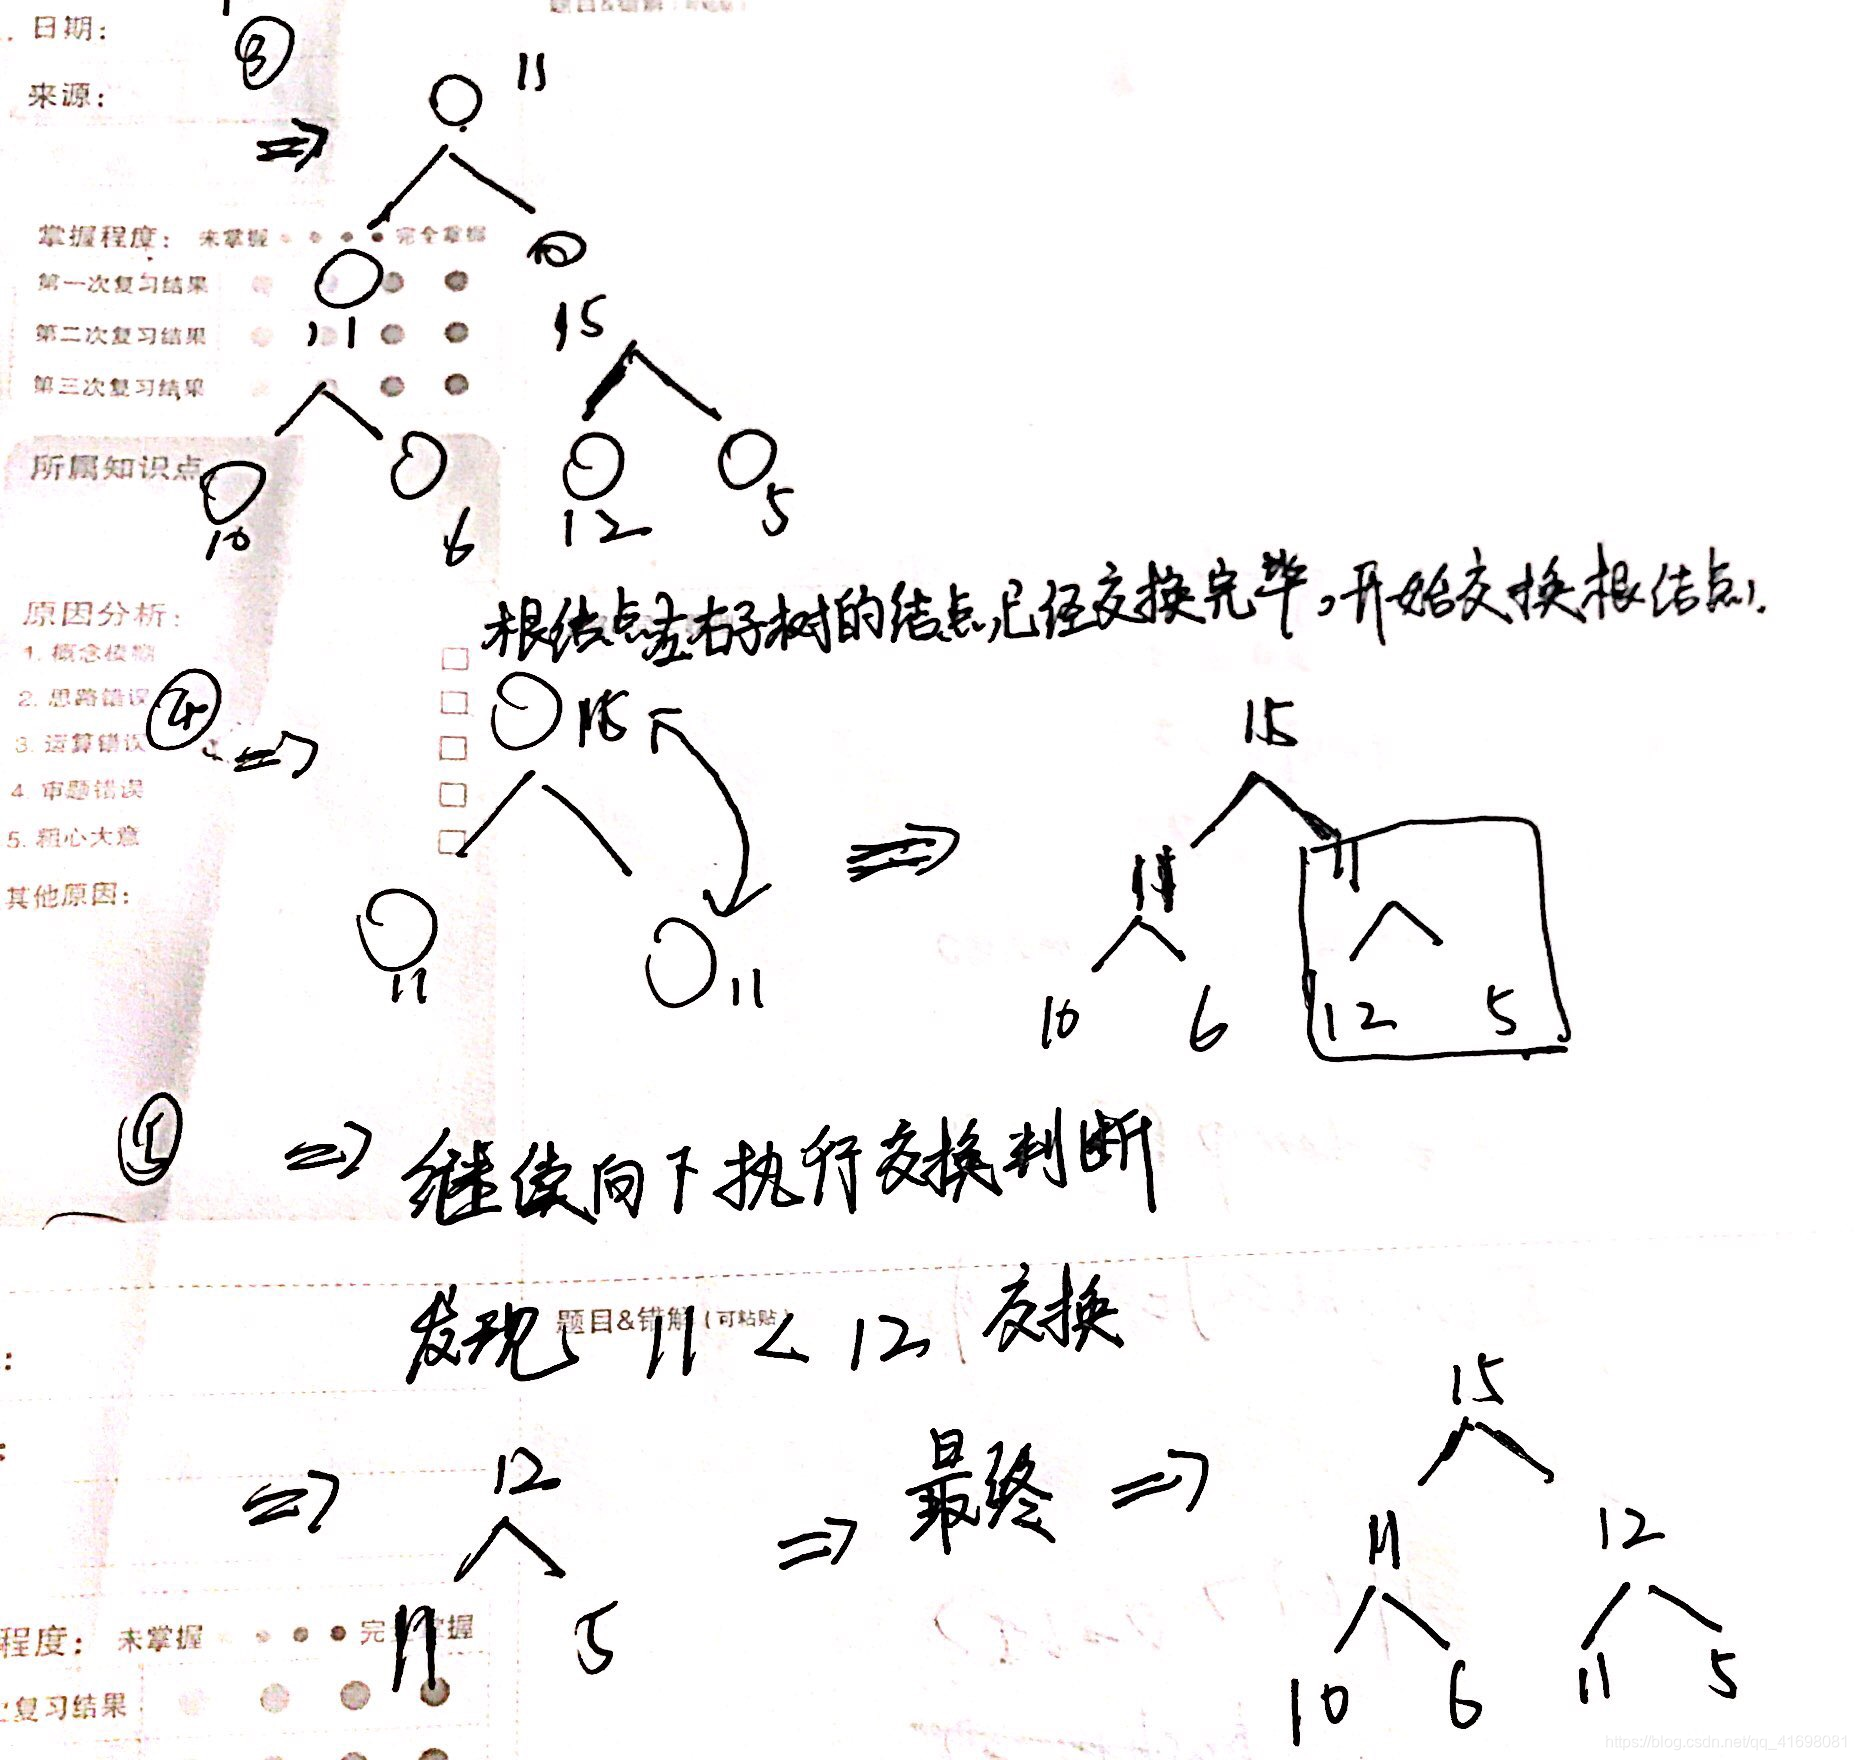 题目&错解(可粘贴)
日期:
③
11
来源:
⇒
掌握程度: 未掌握 完全掌握
第一次复习结果
15
第二次复习结果
11
第三次复习结果
所属知识点
10 6 12 5
根结点左右子树的结点已经交换完毕,开始交换根结点.
原因分析:
1. 概念模糊
2. 思路错误
④ ⇒
15
15
3. 运算错误
4. 审题错误
⇒
5. 粗心大意
11 11
其他原因:
11 11
10 6 12 5
⑤ ⇒ 继续向下执行交换判断
题目&错解(可粘贴)
发现 11 < 12 交换
15
⇒ 12 ⇒ 最终 ⇒
11 12
11 5
程度: 未掌握 完全掌握
10 6 11 5
复习结果
https://blog.csdn.net/qq_41698081